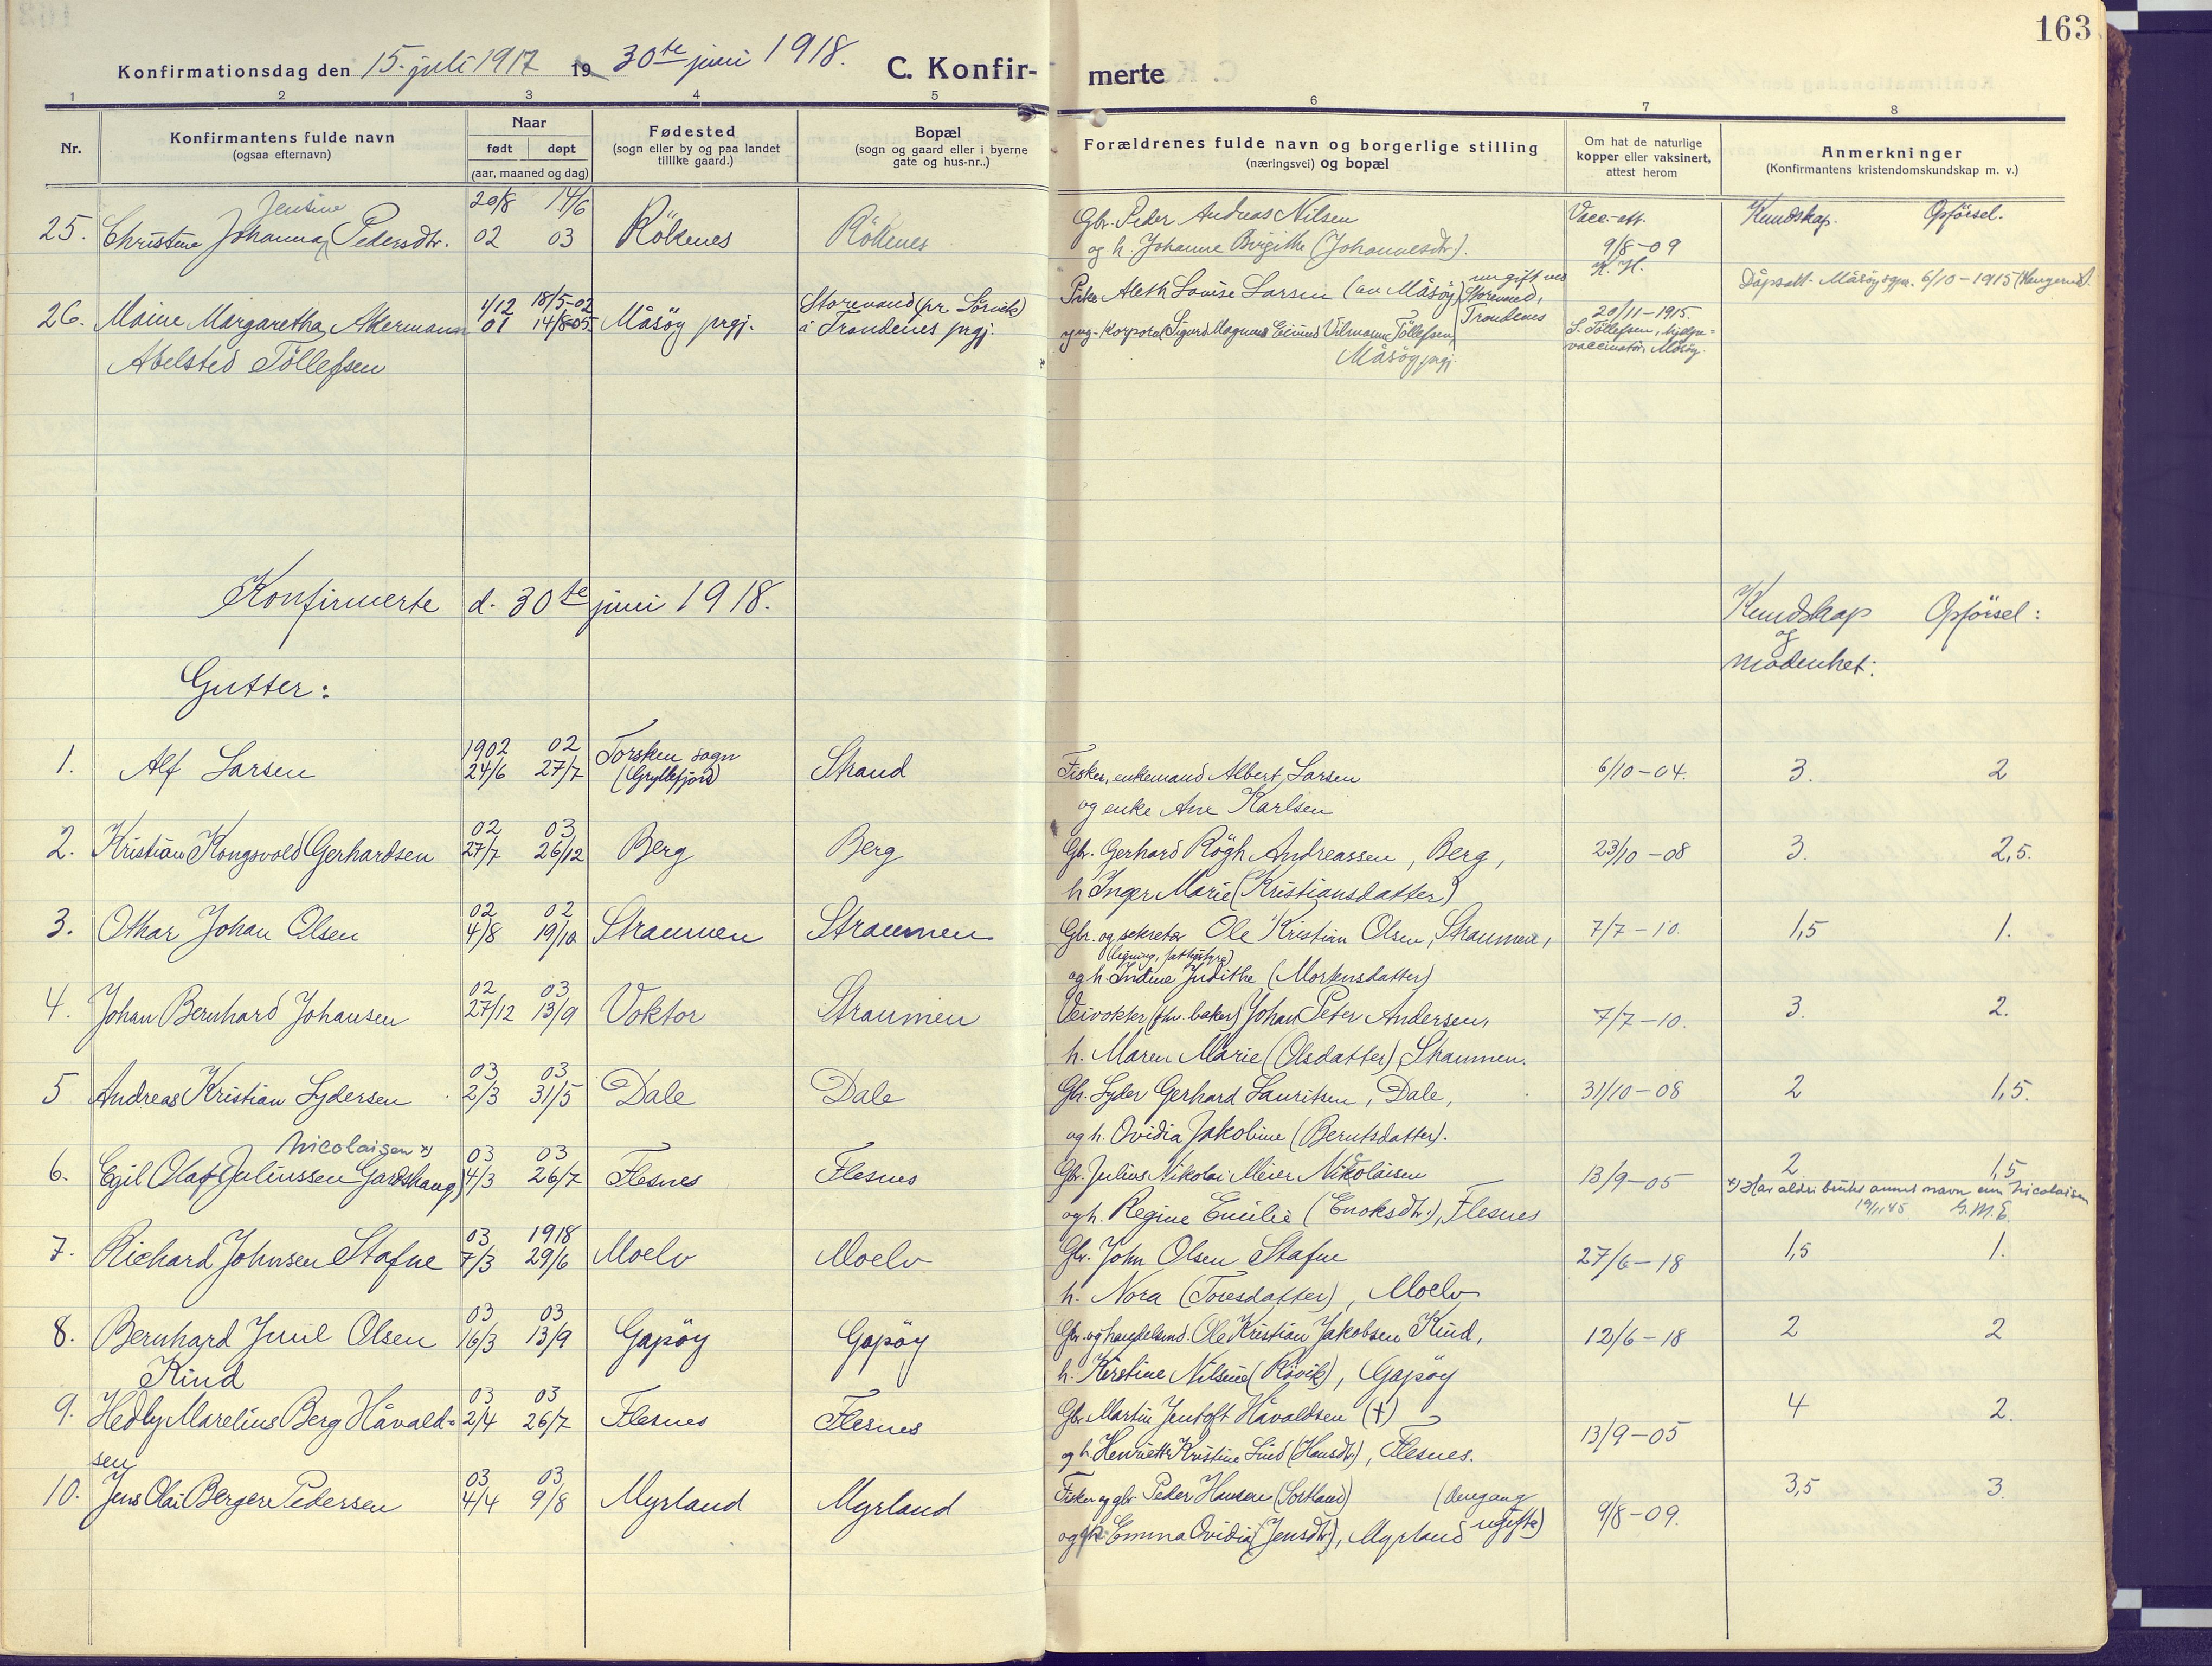 163
Konfirmationsdag den 15. juli 1917 19 30te juni 1918.
C. Konfir- merte
1 2 3 4 5 6 7 8
Nr.
Konfirmantens fulde navn
(ogsaa efternavn)
Naar
født døpt
(aar, maaned og dag)
Fødested
(sogn eller by og paa landet
tillike gaard.)
Bopæl
(sogn og gaard eller i byerne
gate og hus-nr..)
Forældrenes fulde navn og borgerlige stilling
(næringsvei) og bopæl
Om hat de naturlige
kopper eller vaksinert,
attest herom
Anmerkninger
(Konfirmantens kristendomskundskap m. v.)
Jensine 20/8 14/6 Gbr. Peder Andreas Nilsen Vacc.-att. Kundskap. Opförsel.
25. Christine Johanna Pedersdtr. 02 03 Rökenes Rökenes og h. Johanne Birgithe (Johannesdtr.). 9/8-09
K. H.
1/12 18/5-02 Storevand (pr Sörvik) Pike Aleth Lovise Larsen (av Måsöy) ungift ved Storevand, Trondenes Dåpsatt. Måsöy sgpr. 6/10-1915
26. Maine Margaretha Akermann '01 14/8-05 Måsöy prgj. i Trondenes prgj. og ug. korporal Sigurd Magnus Vilmann Töllefsen, 20/11-1915.
Abelsted Töllefsen Måsöy prgj. S. Töllefsen, hjelpe-
vaccinatör, Måsöy.
Konfirmerte d. 30te juni 1918. Kundskap Opförsel:
og
modenhet:
Gutter:
1902 02 Torsken sogn
1. Alf Larsen 24/6 27/7 (Gryllefjord) Strand Fisker, enkemand Albert Larsen 6/10-04. 3. 2
og enke Ane Karlsen
02 03
2. Kristian Kongsvold Gerhardsen 27/7 26/12 Berg Berg Gbr. Gerhard Rögh Andreassen, Berg, 23/10-08 3. 2,5.
h Inger Marie (Kristiansdatter)
02 02
3. Othar Johan Olsen 4/8 19/10 Straumen Straumen Gbr. og sekretær Ole Kristian Olsen, Straumen, 7/7-10. 1,5 1.
(ligning, fattigstyre)
og h. Indine Judithe (Mortensdatter)
02 03
4. Johan Bernhard Johansen 27/12 13/9 Voktor Straumen Veivokter (fhv. baker) Johan Peter Andersen, 7/7-10. 3. 2.
h. Maren Marie (Olsdatter), Straumen.
03 03
5 Andreas Kristian Lydersen 2/3 31/5 Dale Dale Gbr. Lyder Gerhard Lauritsen, Dale, 31/10-08 2 1,5.
og h. Ovidia Jakobine (Berntsdatter).
Nicolaisen x) 03 03
6. Egil Olaf Juliussen Gardshaug) 4/3 26/7 Flesnes Flesnes Gbr. Julius Nikolai Meier Nikolaisen 13/9-05 2 1,5
og h. Regine Emilie (Enoksdtr.), Flesnes x) Har aldri brukt annet navn enn Nicolaisen
19/1 45 G.M.E.
03 1918
7. Richard Johnsen Stafne 7/3 29/6 Moelv Moelv Gbr. John Olsen Stafne 27/6-18 1,5 1.
h. Nora (Toresdatter), Moelv
03 03
8. Bernhard Juul Olsen 16/3 13/9 Gapöy Gapöy Gbr. og handelsmd. Ole Kristian Jakobsen Kind, 12/6-18 2 2
Kind h. Kirstine Nilsine (Rövik), Gapöy
03 03
9. Hedby Marelius Berg Håvald- 2/4 26/7 Flesnes Flesnes Gbr. Martin Jentoft Håvaldsen (+) 13/9-05 4 2.
sen og h. Henriette Kristine Lind (Hansdtr), Flesnes.
03 03
10. Jens Olai Berger Pedersen 4/4 9/8 Myrland Myrland Fisker og gbr. Peder Hansen (Sortland) (dengang ugifte) 9/8-09. 3,5 3.
og Emma Ovidia (Jensdtr.), Myrland